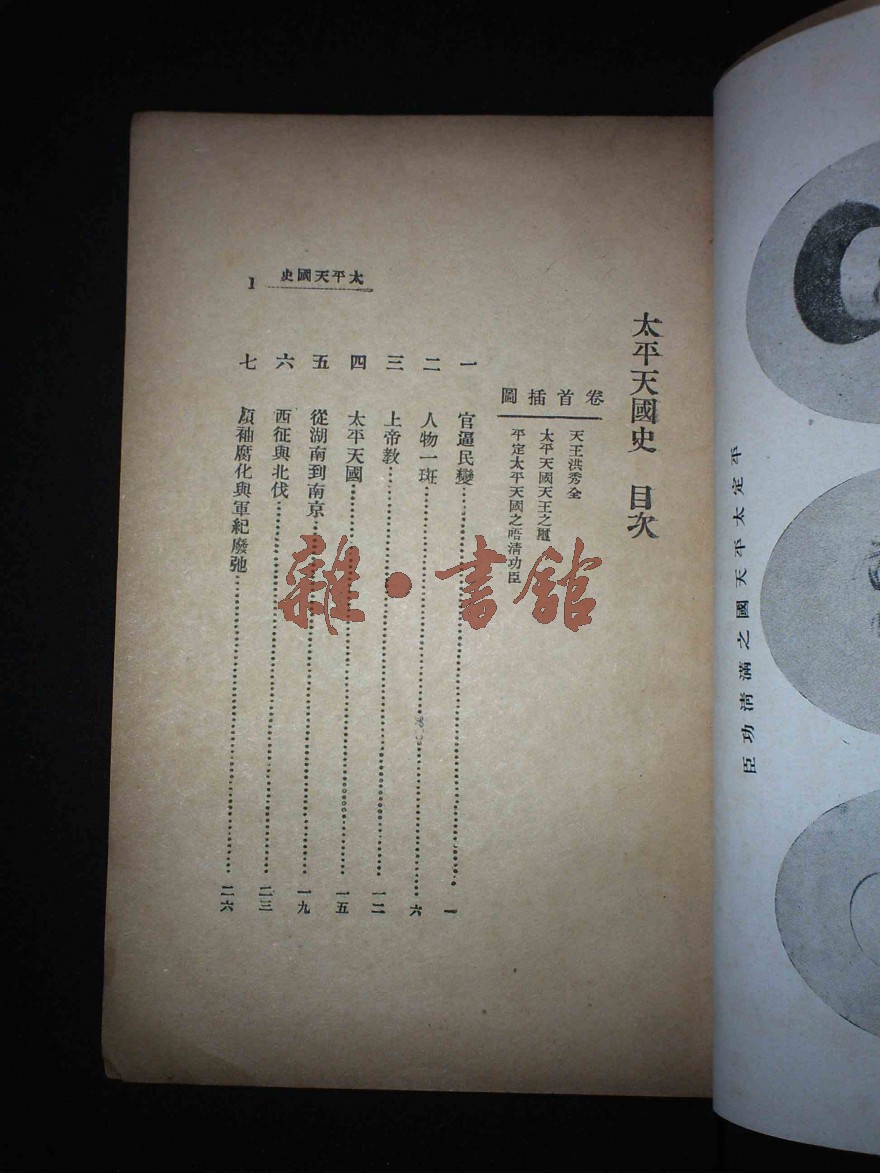 平定太平天國之滿清功臣
太平天國史 目次
卷首插圖
天王洪秀全
太平天國天王之
平定太平天國之清功臣
一 官逼民變 一
二 人物一斑 六
三 上帝教 一二
四 太平天國 一五
五 從湖南到南京 一九
六 西征與北伐 二三
七 領袖腐化與軍紀廢弛 二六
太平天國史
1
雜·書館